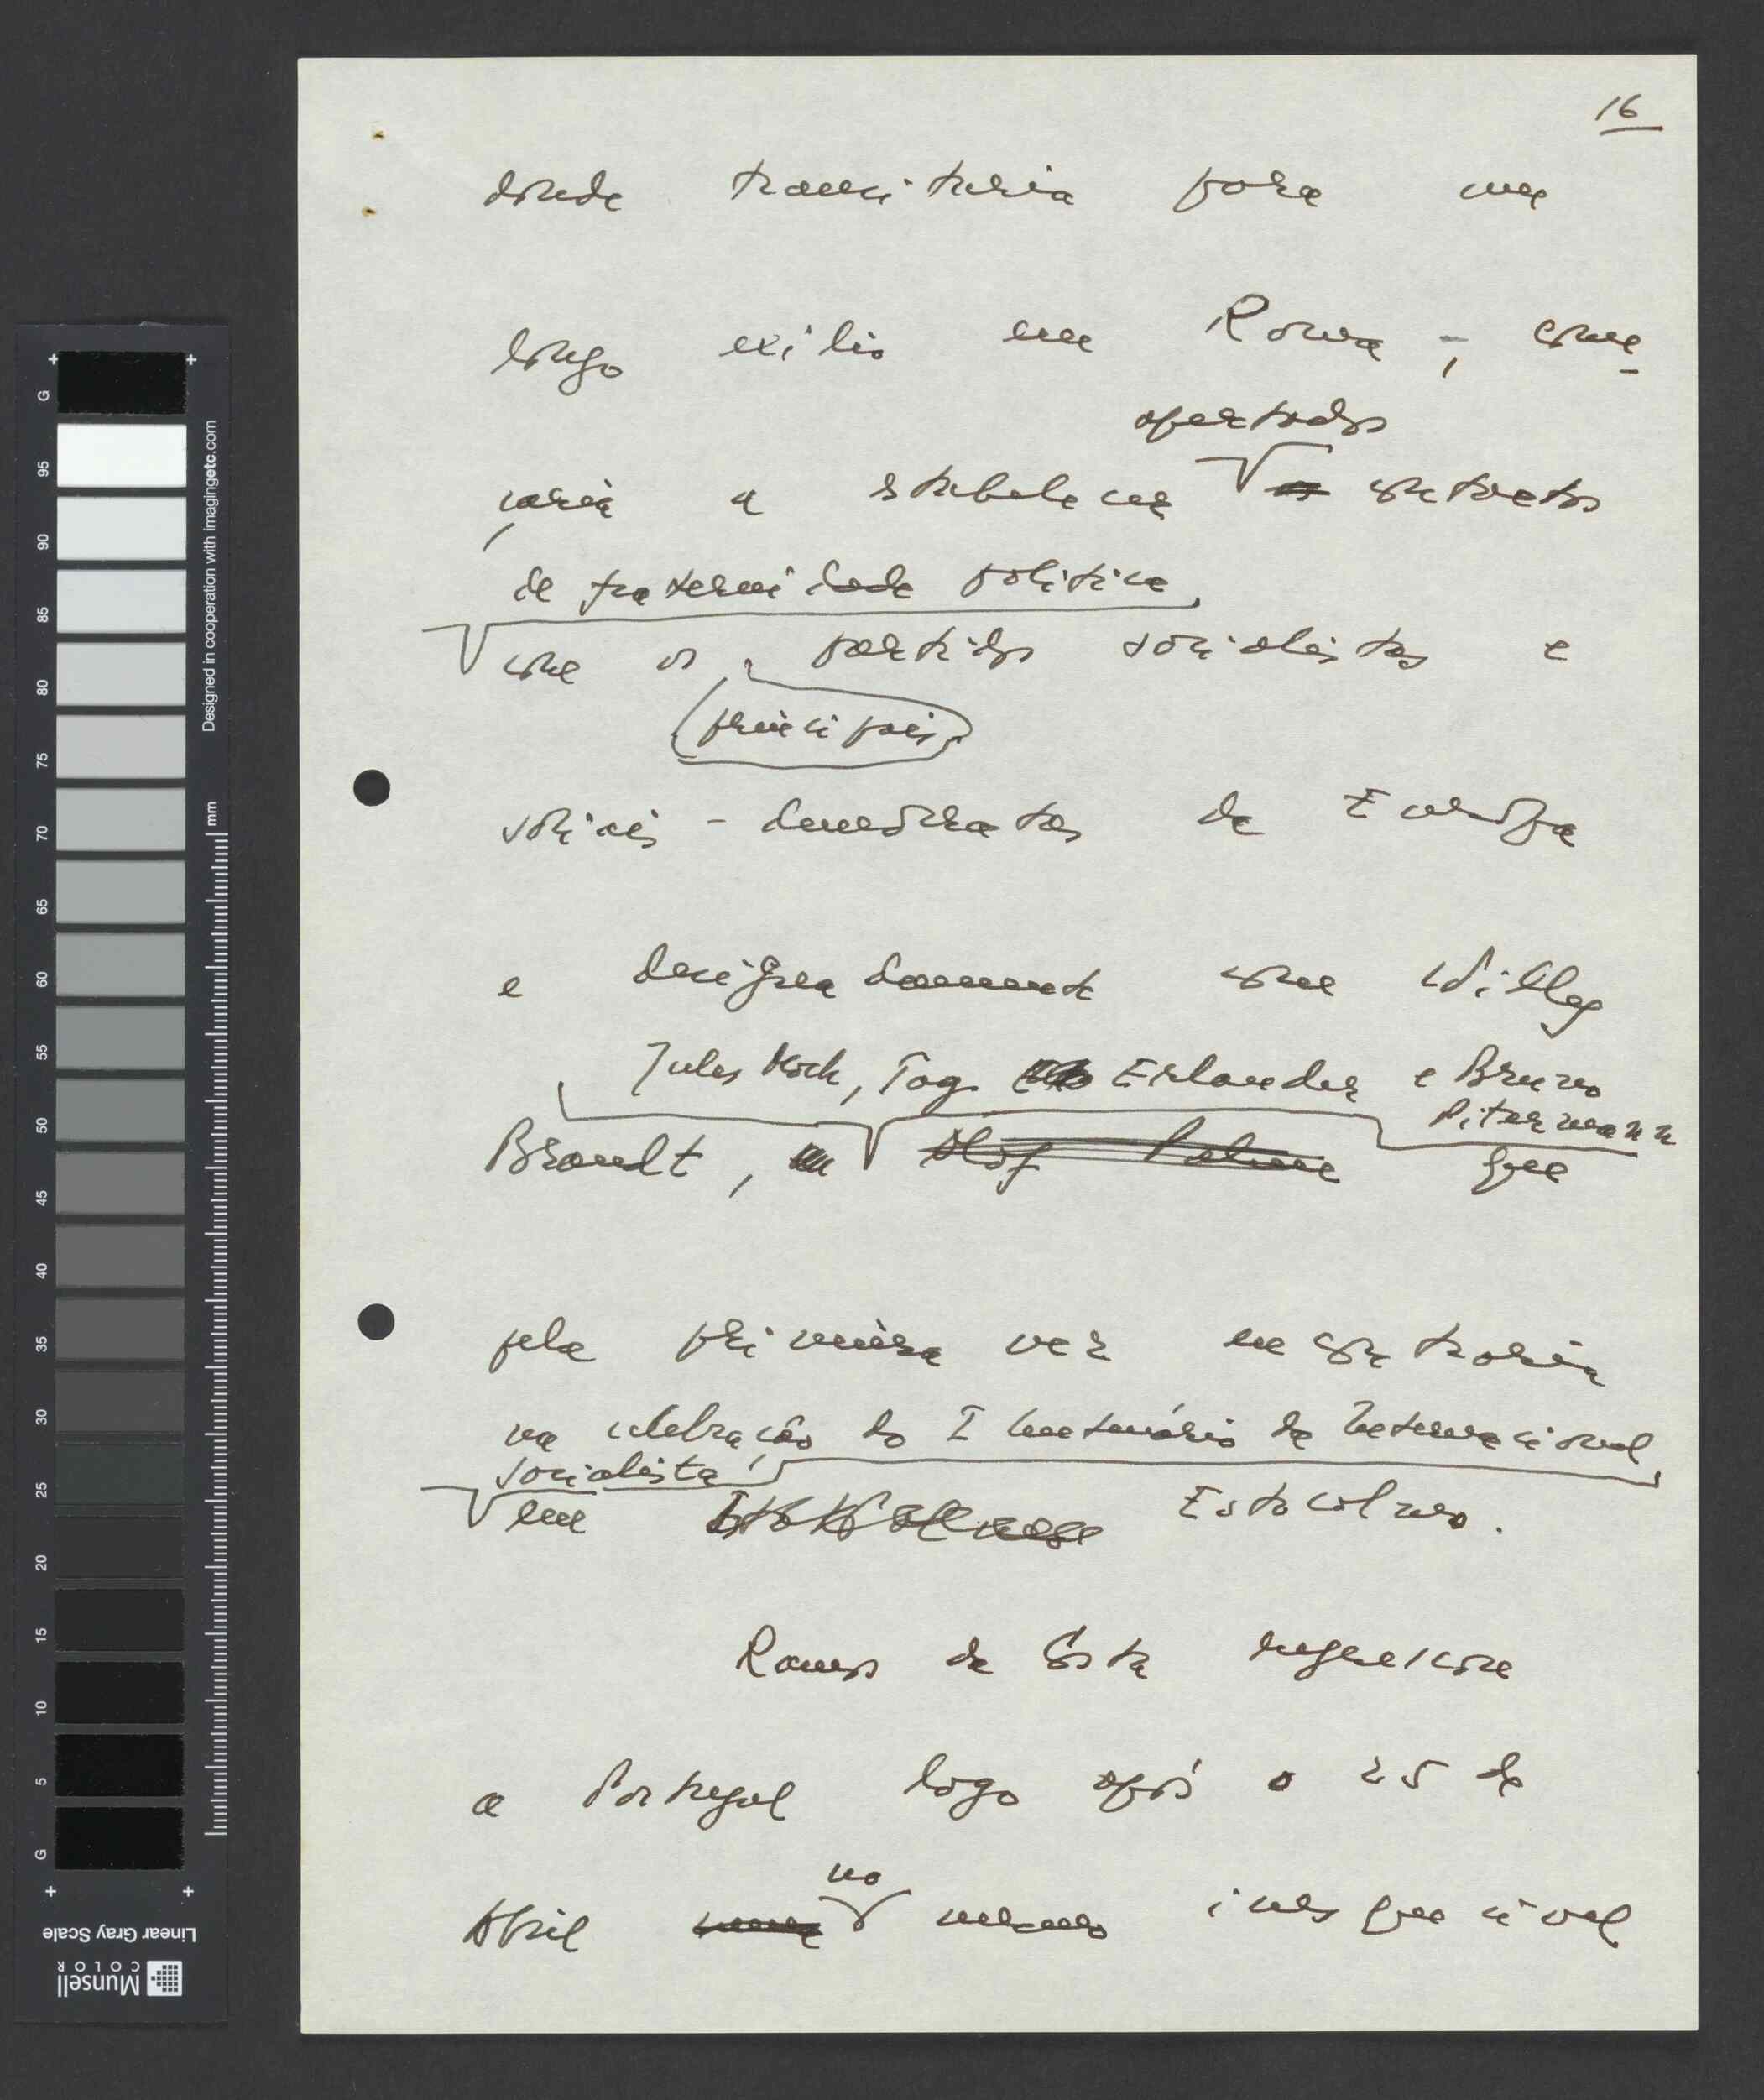 16
donde transitaria para um
longo exílio em Roma -, come-
çaria a estabelecer
apertados
os contactos
de fraternidade política
com os partidos socialistas e
principais
sociais-democratas da Európa
e designadamente com Willy
Jules Moch, Tage Erlander e Bruno
Pitermann
Brandt, Olof Palme que
pela primeira vez encontraria
na celebração do I Centenário da Internacional
socialista,
em Estocolmo.
Ramos da Costa regressou
a Portugal logo após o 25 de
no
Abril mesmo inesquecível
Designed in cooperation with imagingetc.com
mm
+ +
G
95
90
85
80
75
70
65
60
55
50
45
40
35
30
25
20
15
10
5
G
+ +
Linear Gray Scale
Munsell
COLOR